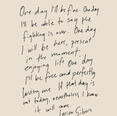 One day I'll be fine. One day
I'll be able to say the
fighting is over. One day
I will be here, present
in the moment,
enjoying life. One day
I'll be free and perfectly
loving me. If that day is
not today, nevertheless, I know
it will come.